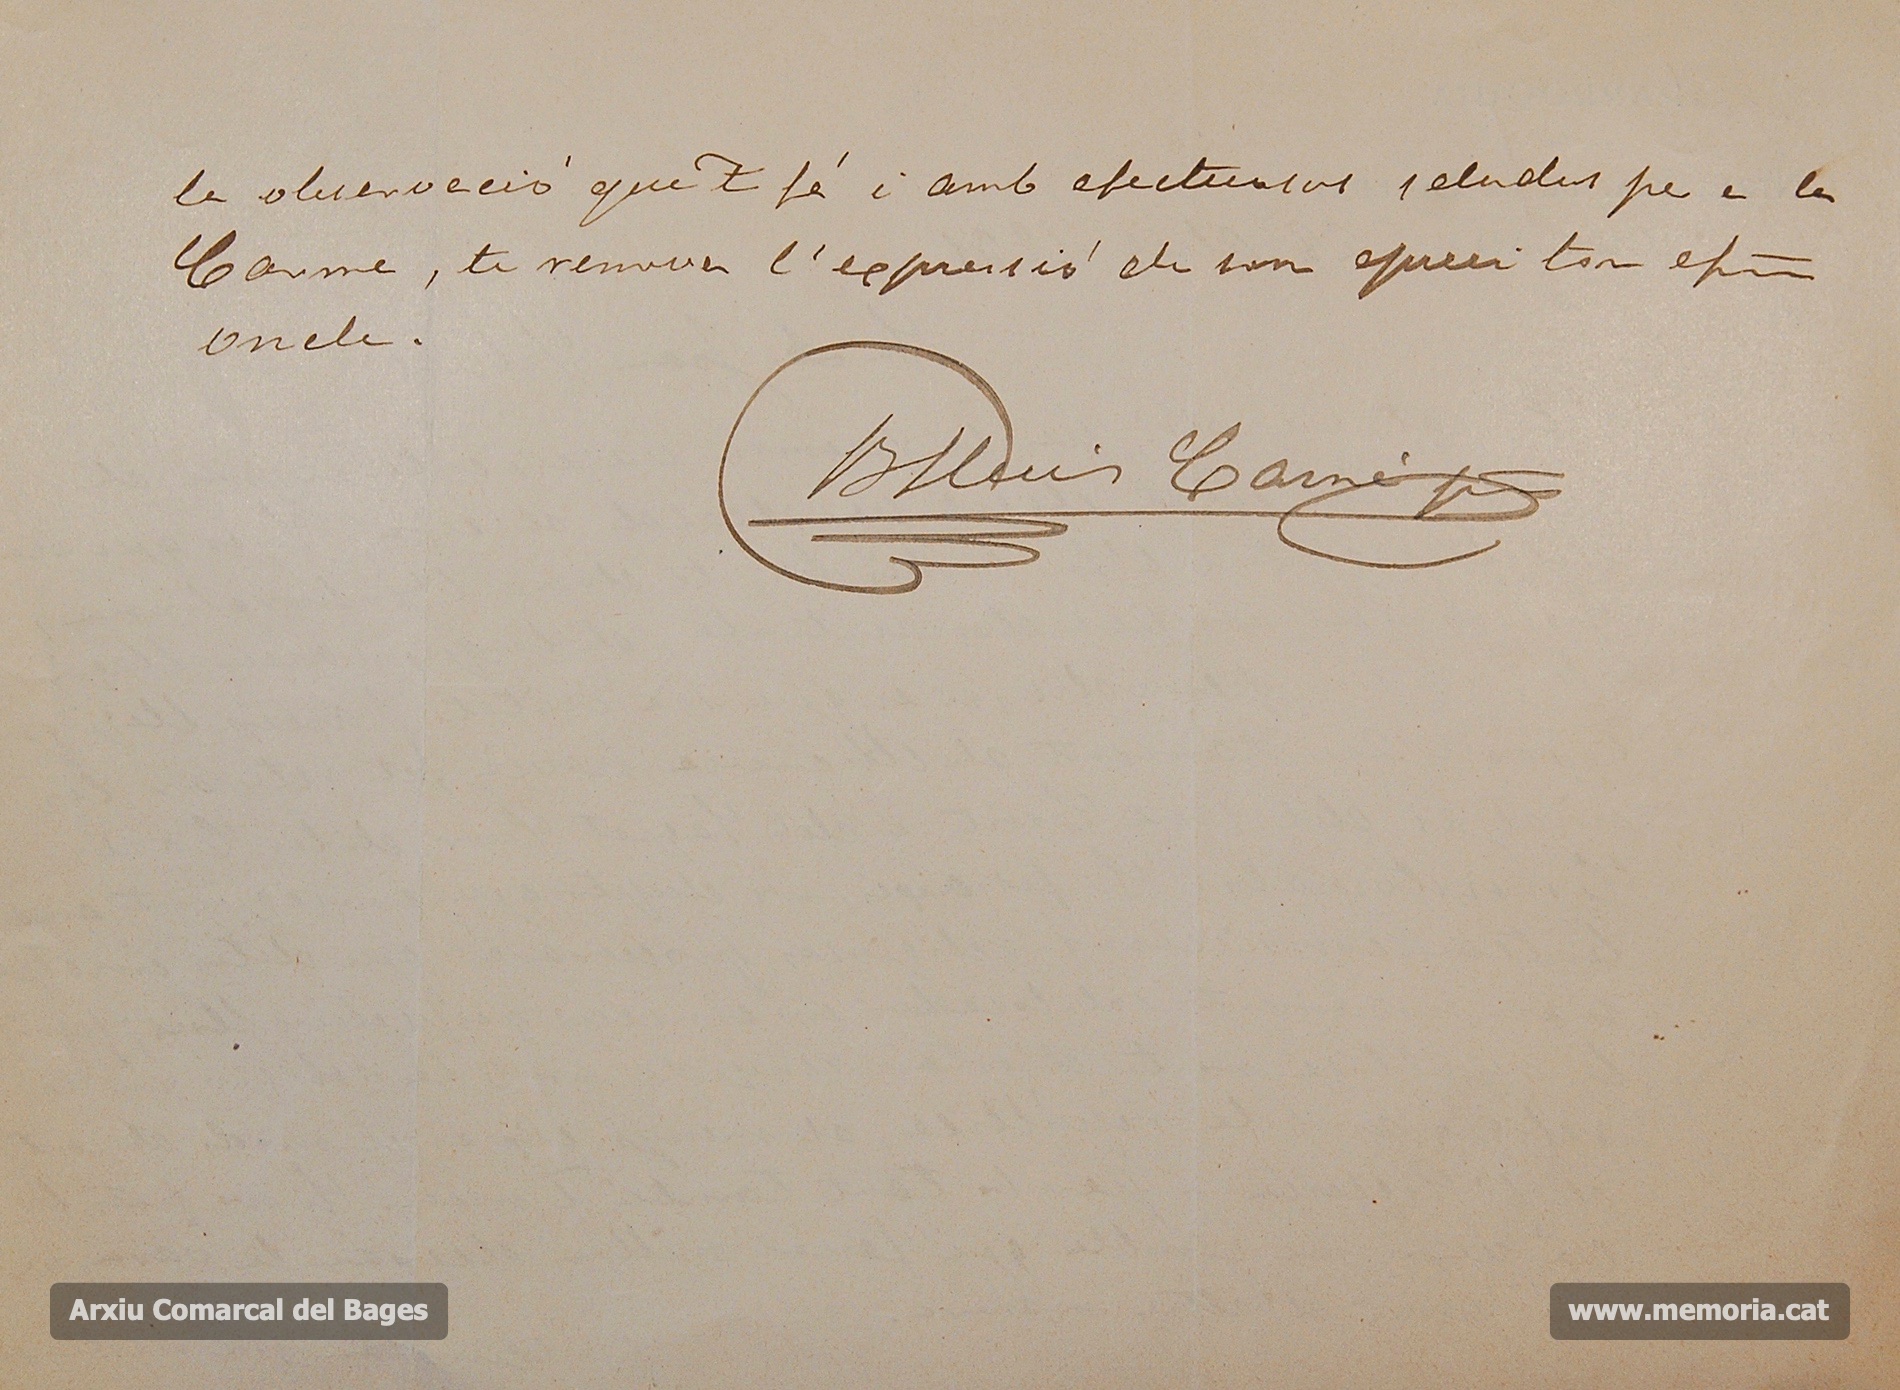 la observació que't fá i amb afectuosos saludus per a la
Carme, te renova l'expressió de son apreci ton afm
oncle.
Lluis Carné
Arxiu Comarcal del Bages
www.memoria.cat